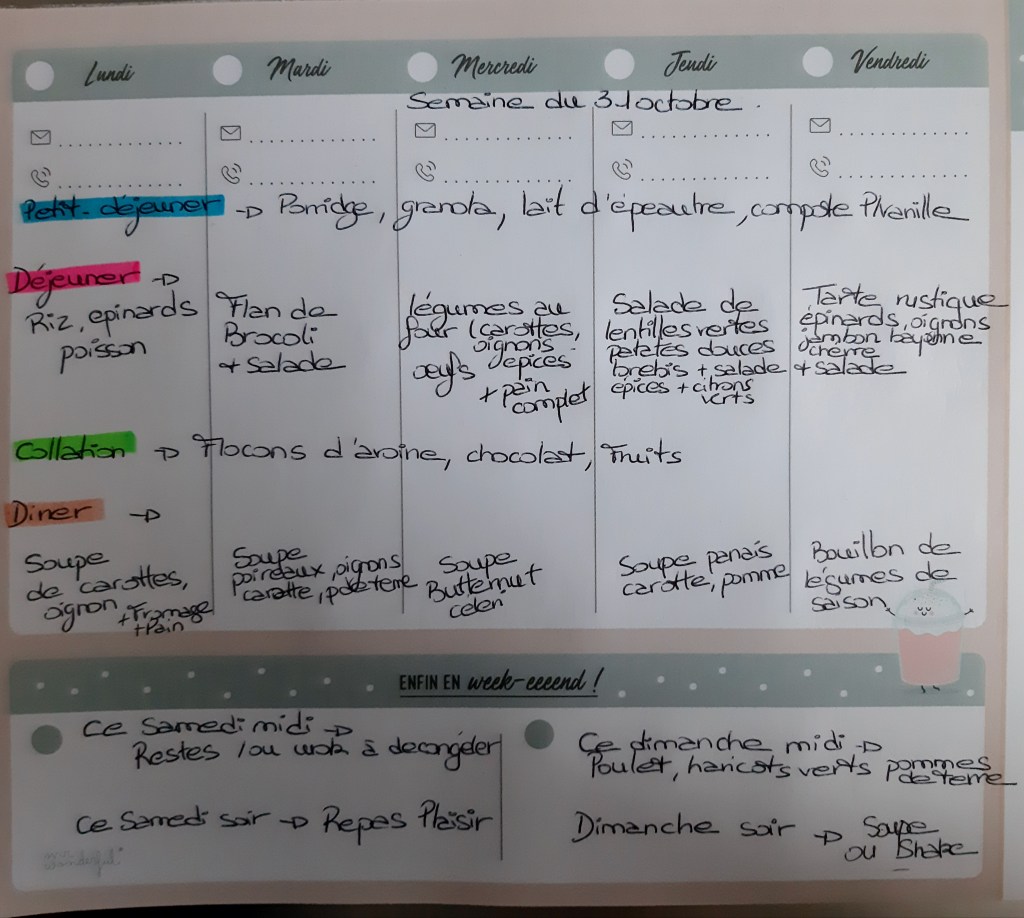 Lundi
Mardi
Mercredi
Jeudi
Vendredi
Semaine du 31 octobre.
Petit-déjeuner → Porridge, granola, lait d'épeautre, compote P/vanille
Déjeuner →
Riz, epinards
poisson
Flan de
Brocoli
+ salade
légumes au
four (carottes,
oignons
epices
oeufs
+ pain
complet
Salade de
lentilles vertes
patates douces
brebis + salade
épices + citrons
verts
Tarte rustique
épinards, oignons
jambon bayonne
chèvre
+ salade
Collation → Flocons d'avoine, chocolat, Fruits
Diner →
Soupe
de carottes,
oignon
+ Fromage
+ Pain
Soupe
poireaux, oignons
carotte, p de terre
Soupe
Butternut
celeri
Soupe panais
carotte, pomme
Bouillon de
légumes de
saison
ENFIN EN week-eeeend !
Ce samedi midi →
Restes /ou wok à decongeler
ce samedi soir → Repas Plaisir
Ce dimanche midi →
Poulet, haricots verts pommes
de terre
Dimanche soir → Soupe
ou Shake